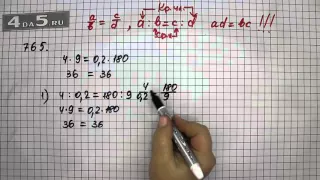 4DA5.RU
кр.чл.
a/b = c/d , a : b = c : d  ad = bc !!!
ср.чл
765.
4 · 9 = 0,2 · 180
36 = 36
1) 4 : 0,2 = 180 : 9  4/0,2 180/9
4 · 9 = 0,2 · 180
36 = 36